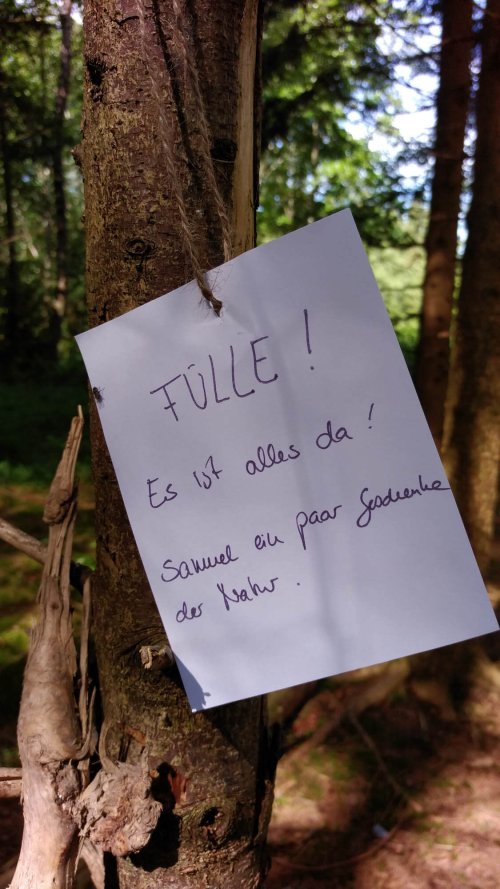 FÜLLE!
Es ist alles da!
Sammel ein paar Geschenke
der Natur.